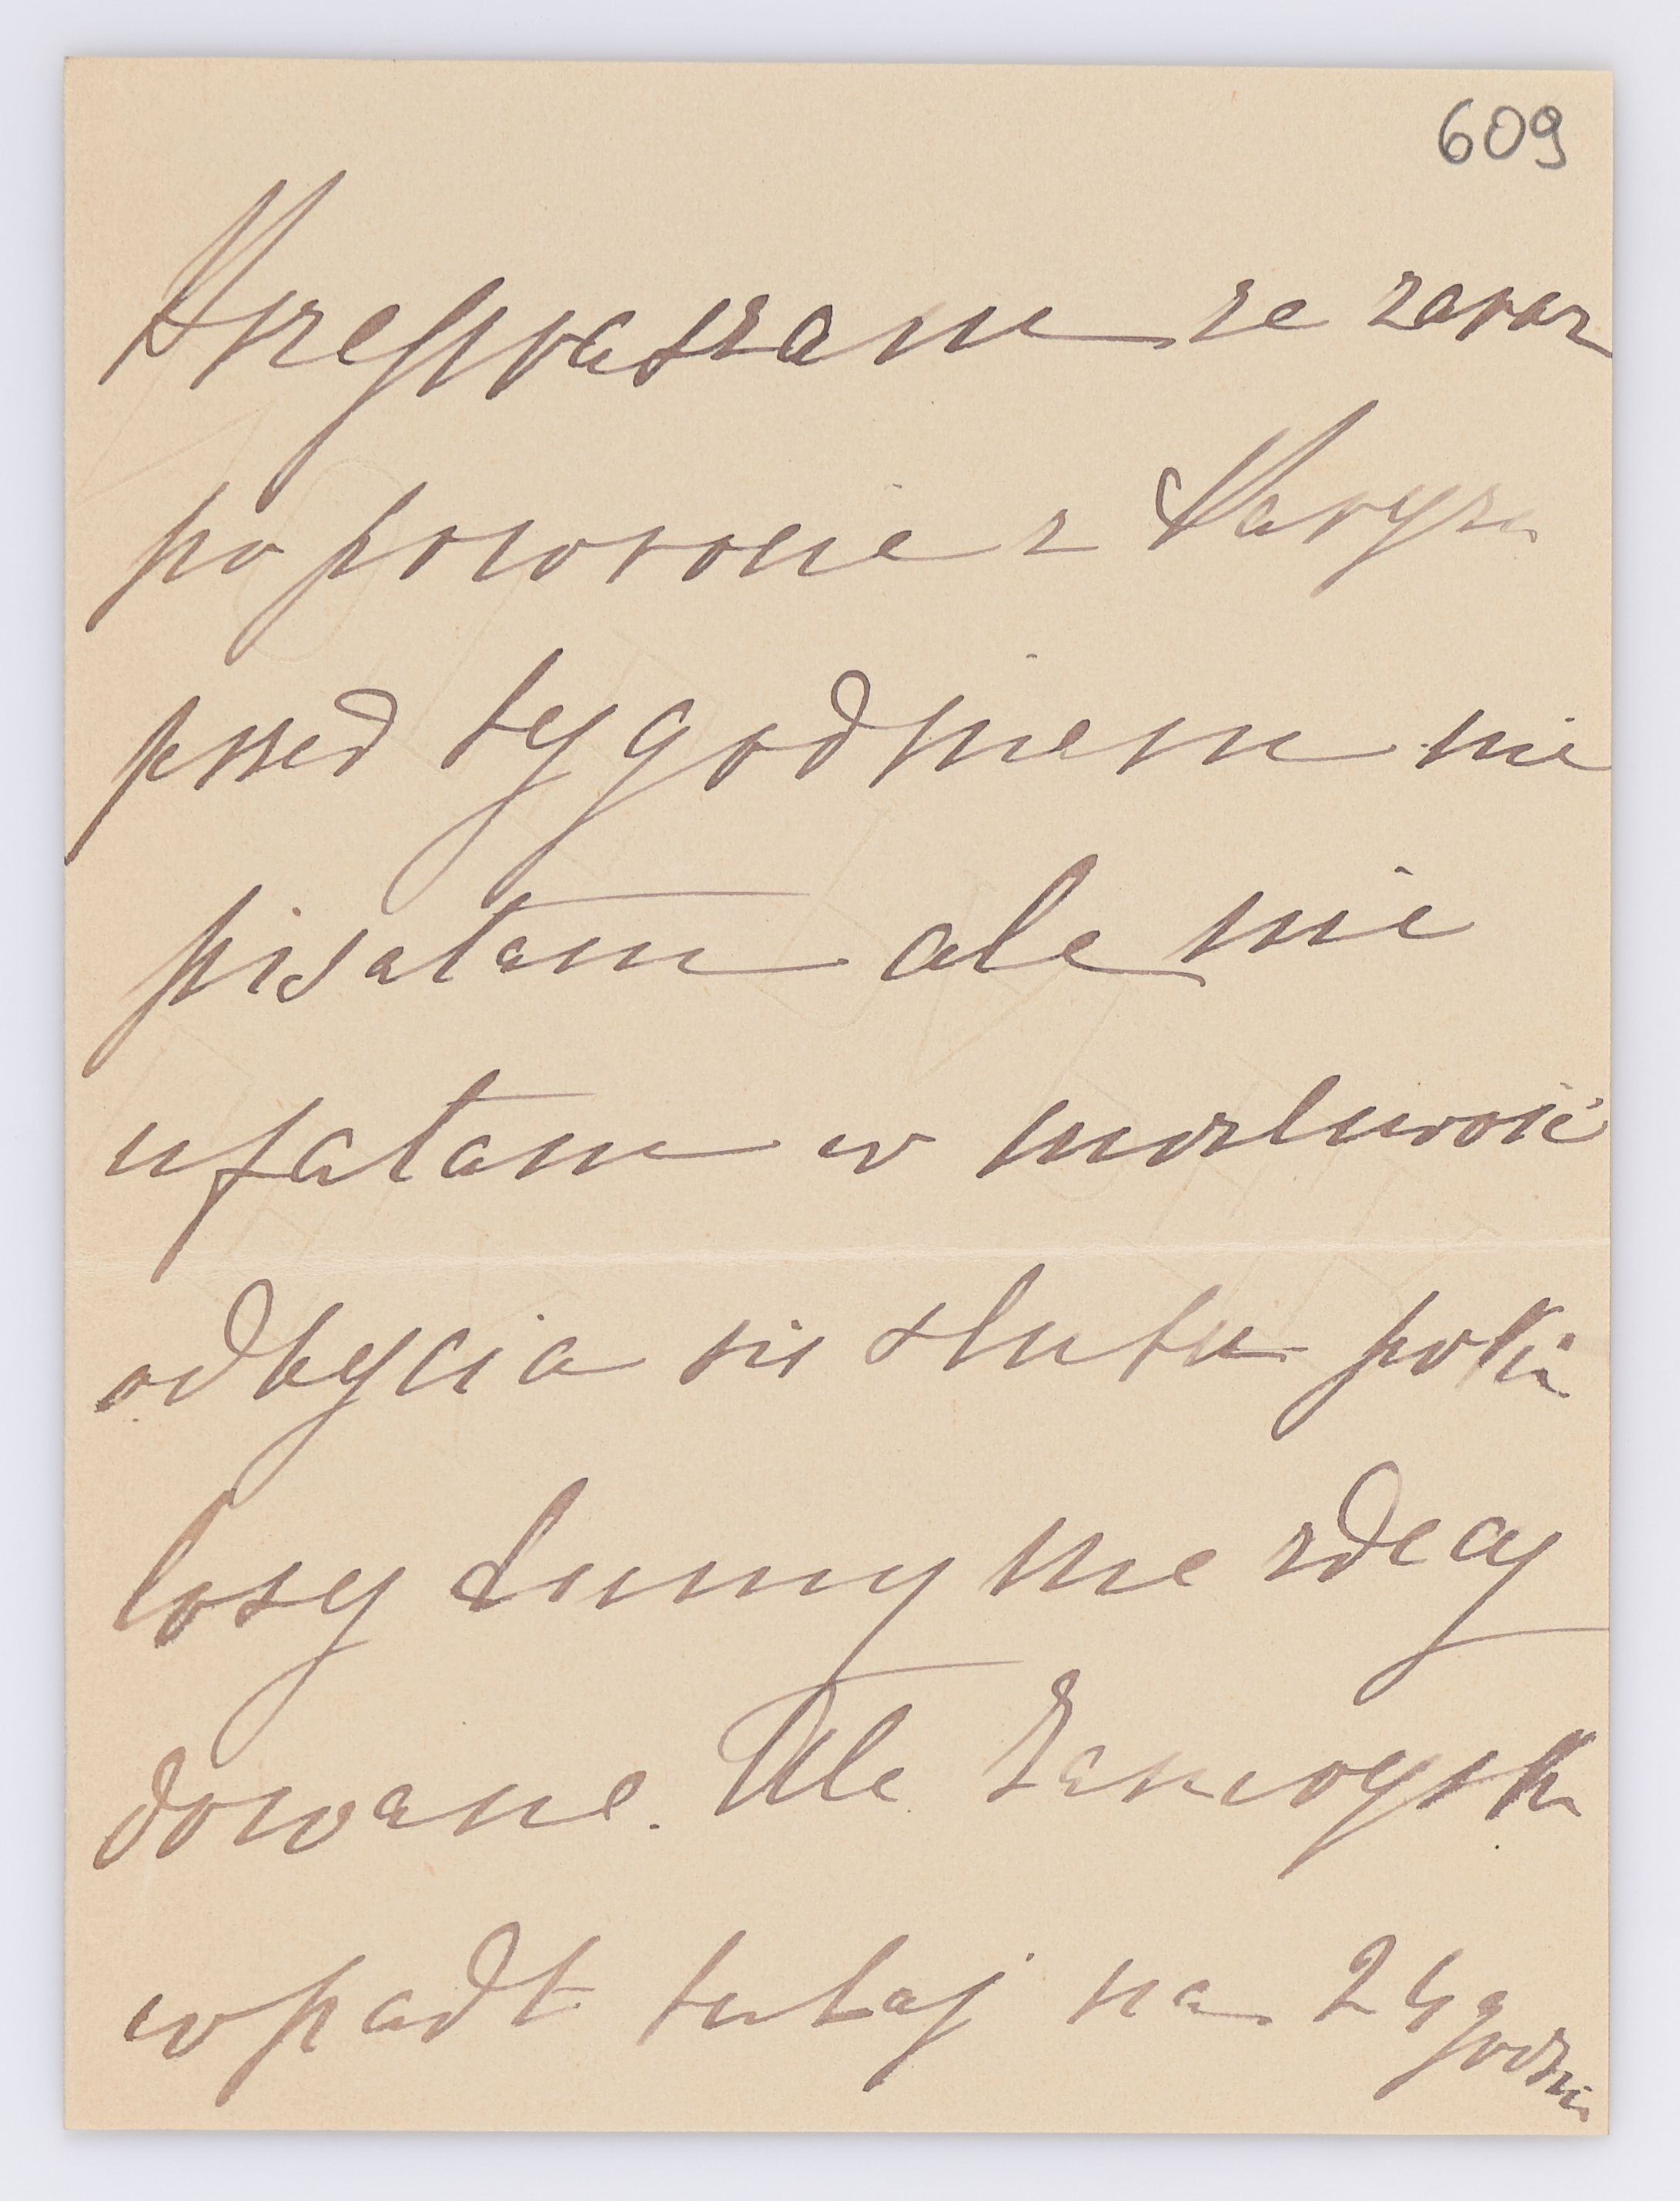 609
Przepraszam ze zaraz
po powrocie z Paryza
przed tygodniem nie
pisałam ale nie
ufałam w mozliwość
odbycia się slubu poki
losy Dumy nie zdecy
dowane. Ale Zamoyski
wpadł tutaj na 24 godzin